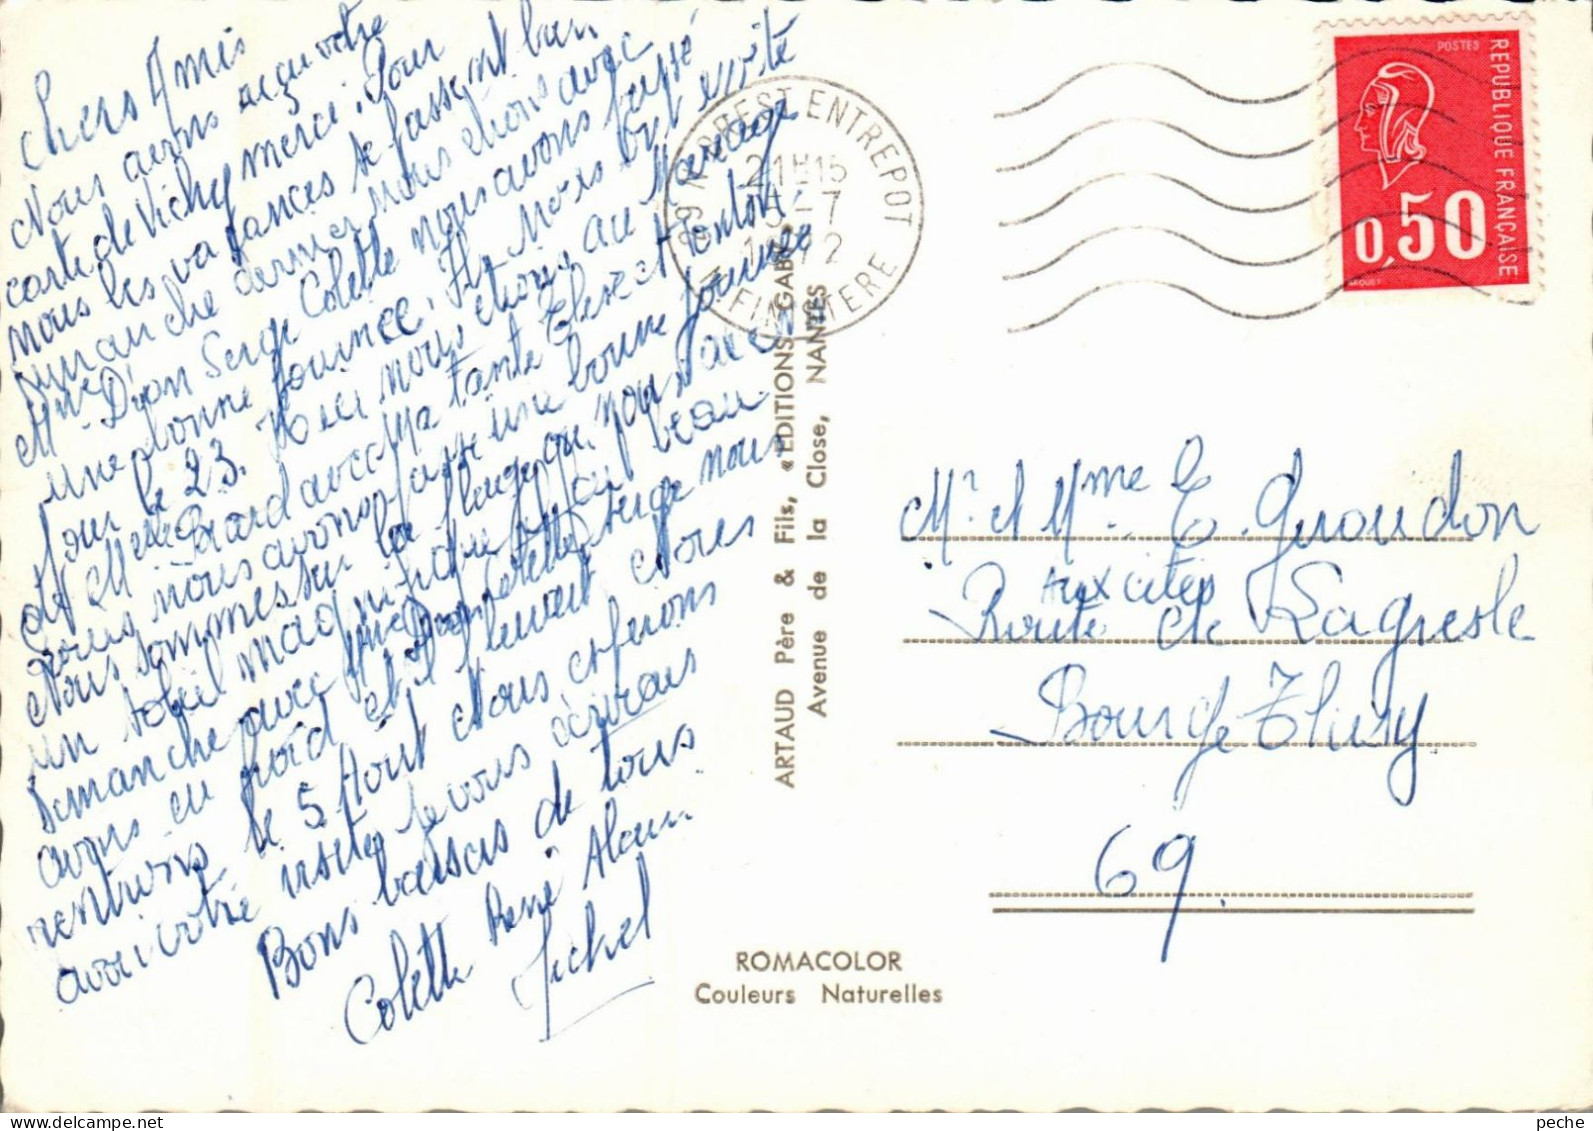 Chers Amis
Nous avons reçu votre
carte de Vichy merci. Pour
nous les vacances se passent bien
Dimanche dernier nous étions avec
Mme Dion Serge Colette nous avons passé
une bonne journée. Ils nous ont invité
pour le 23. Hier nous étions au Mariage
de avec ma tante et tonton
nous avons passé une bonne journée
Nous sommes sur la plage ou nous avons
un soleil magnifique plus beau
Dimanche avec Mme Dion Colette Serge nous
avons eu froid et il pleuvait Nous
rentrons le 5 Août Nous espérons
avoir votre visite je vous écrirais
Bons baisers de tous
Colette René Alain
Michel
29 BREST ENTREPOT
21H15
-7
1972
FINISTERE
POSTES
REPUBLIQUE FRANÇAISE
0,50
ARTAUD Père & Fils, « EDITIONS GABY »
Avenue de la Close, NANTES
Mr et Mme E. Giroudon
Aux cités
Route de Lagresle
Bourg de Thizy
69.
ROMACOLOR
Couleurs Naturelles
peche